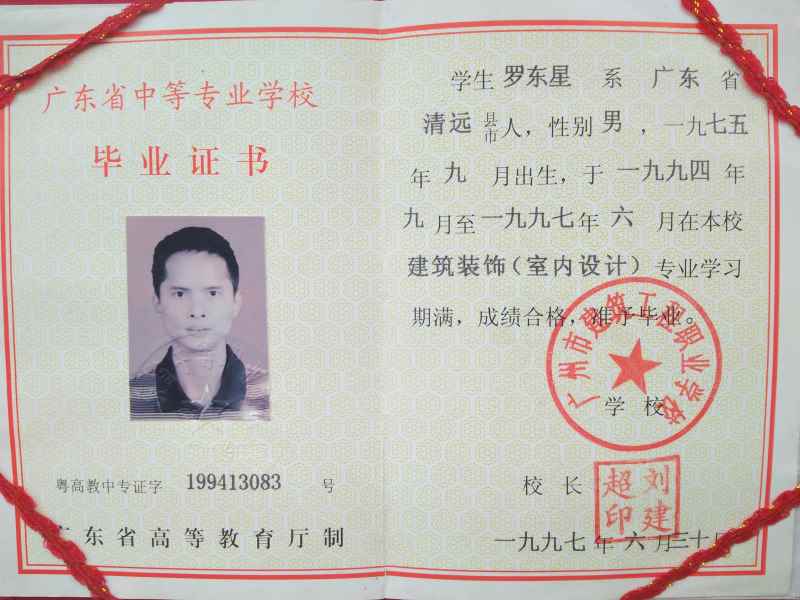 广东省中等专业学校
毕业证书
粤高教中专证字 199413083 号
广东省高等教育厅制
学生 罗东星 系 广东 省
清远 县市 人，性别 男 ，一九七五
年 九 月出生，于 一九九四 年
九 月至 一九九七 年 六 月在本校
建筑装饰（室内设计） 专业学习
期满，成绩合格，准予毕业。
广州市建筑工程职业学校
学 校
校 长
刘建超印
一九九七 年 六 月三十日